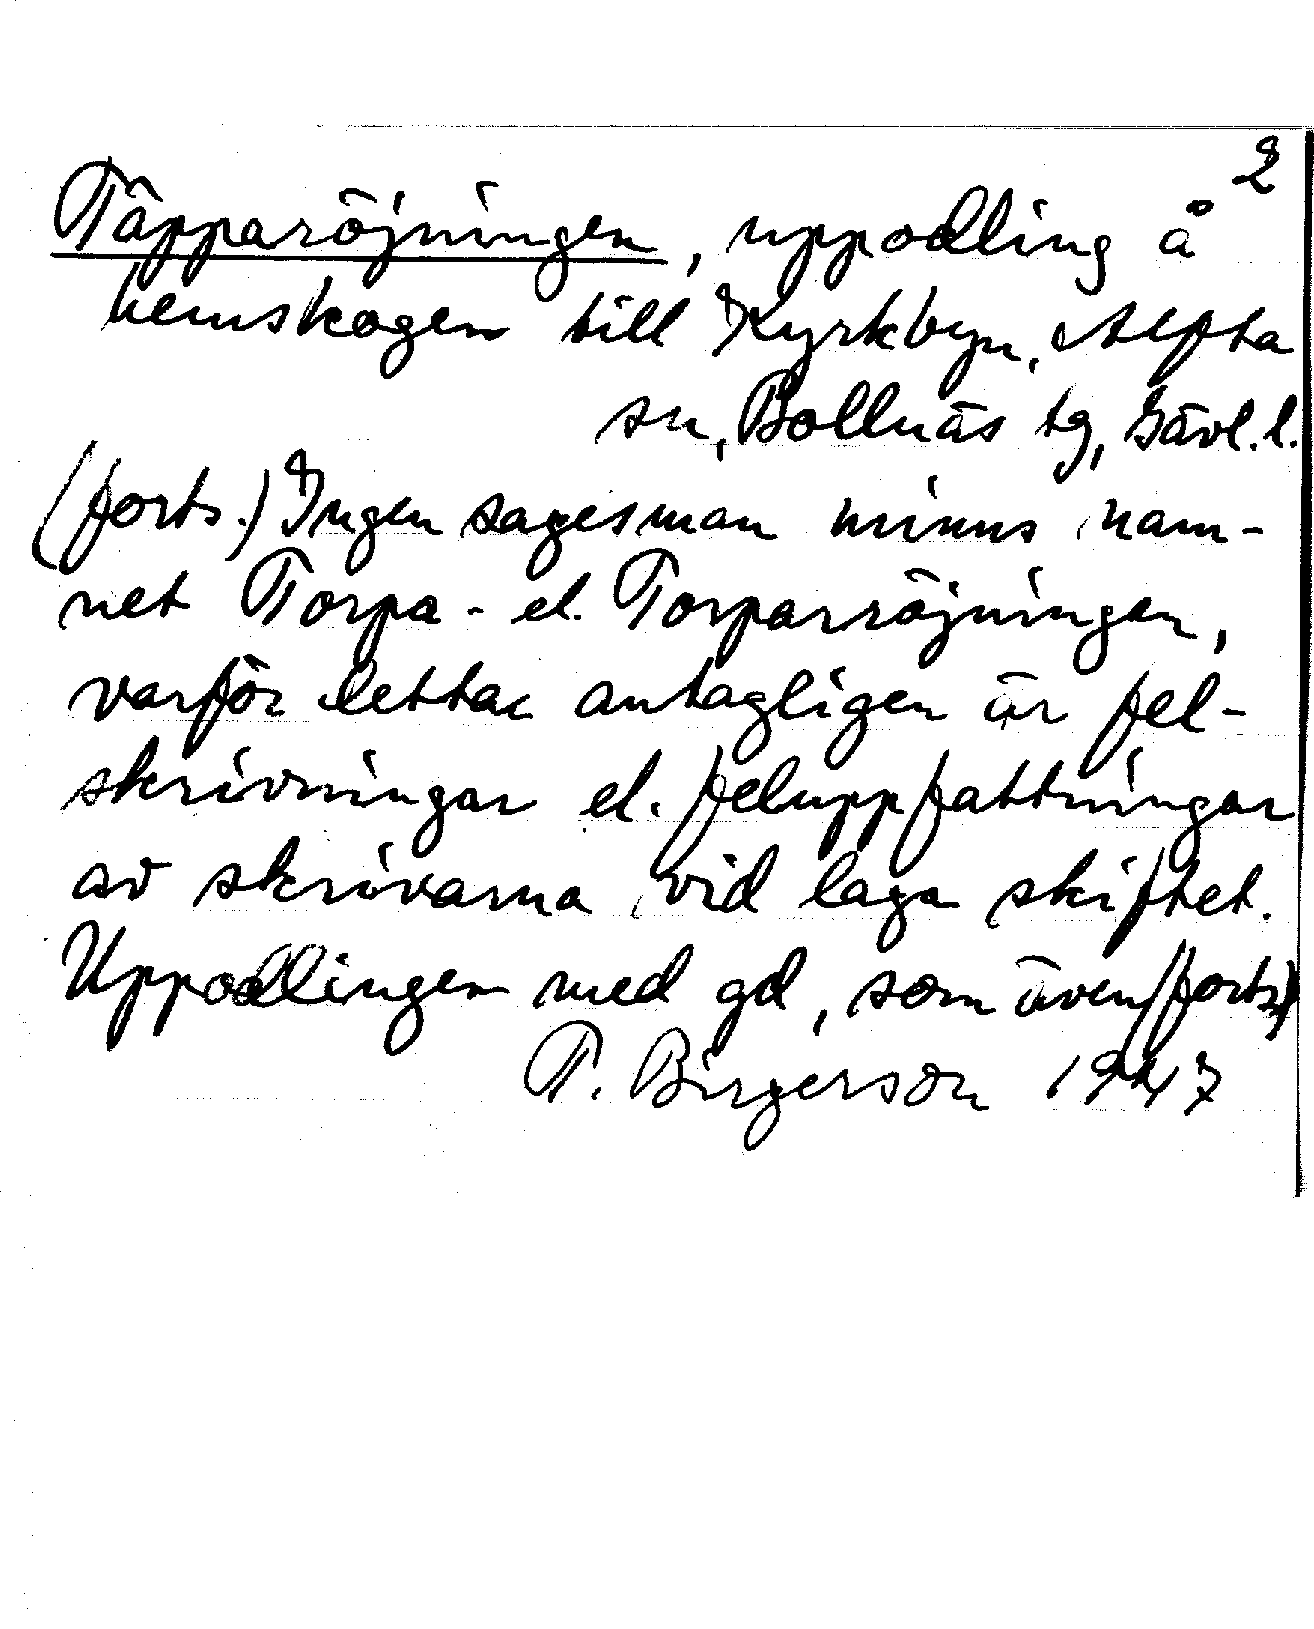 2
Täpparöjningen, uppodling å
hemskogen till Kyrkbyn, Alfta
sn, Bollnäs tg, Gävl. l.
(forts.) Ingen sagesman minns nam-
net Torpa- el. Torparröjningen,
varför dettac antagligen är fel-
skrivningar el. feluppfattningar
av skrivarna vid laga skiftet.
Uppodlingen med gd, som även (forts.)
T. Birgerson 1947